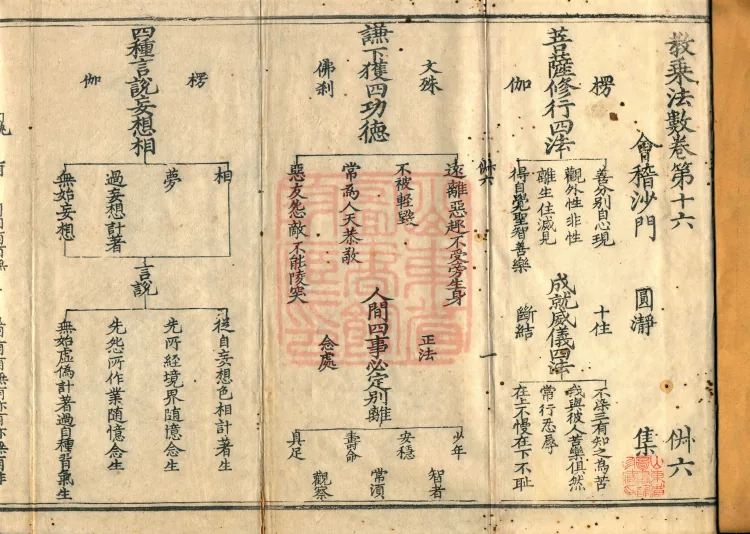 教乘法數卷第十六 㑂六
會稽沙門 圓瀞 集
菩薩修行四法
楞
伽
善分別自心現
觀外性非性
離生住滅見
得自覺聖智善樂
成就威儀四法
十住
斷結
不染三有知之為苦
我與彼人苦樂俱然
常行忍辱
在上不慢在下不恥
㑂六
一
謙下獲四功德
文殊
佛刹
遠離惡趣不受旁生身
不被輕毀
常為人天恭敬
惡友怨敵不能陵突
人間四事必定別離
正法
念處
少年
安穩
壽命
具足
智者
常須
觀察
四種言說妄想相
楞
伽
相
夢
過妄想計著
無始妄想
言說
從自妄想色相計著生
先所經境界隨憶念生
先怨所作業隨憶念生
無始虛偽計著過自種習氣生